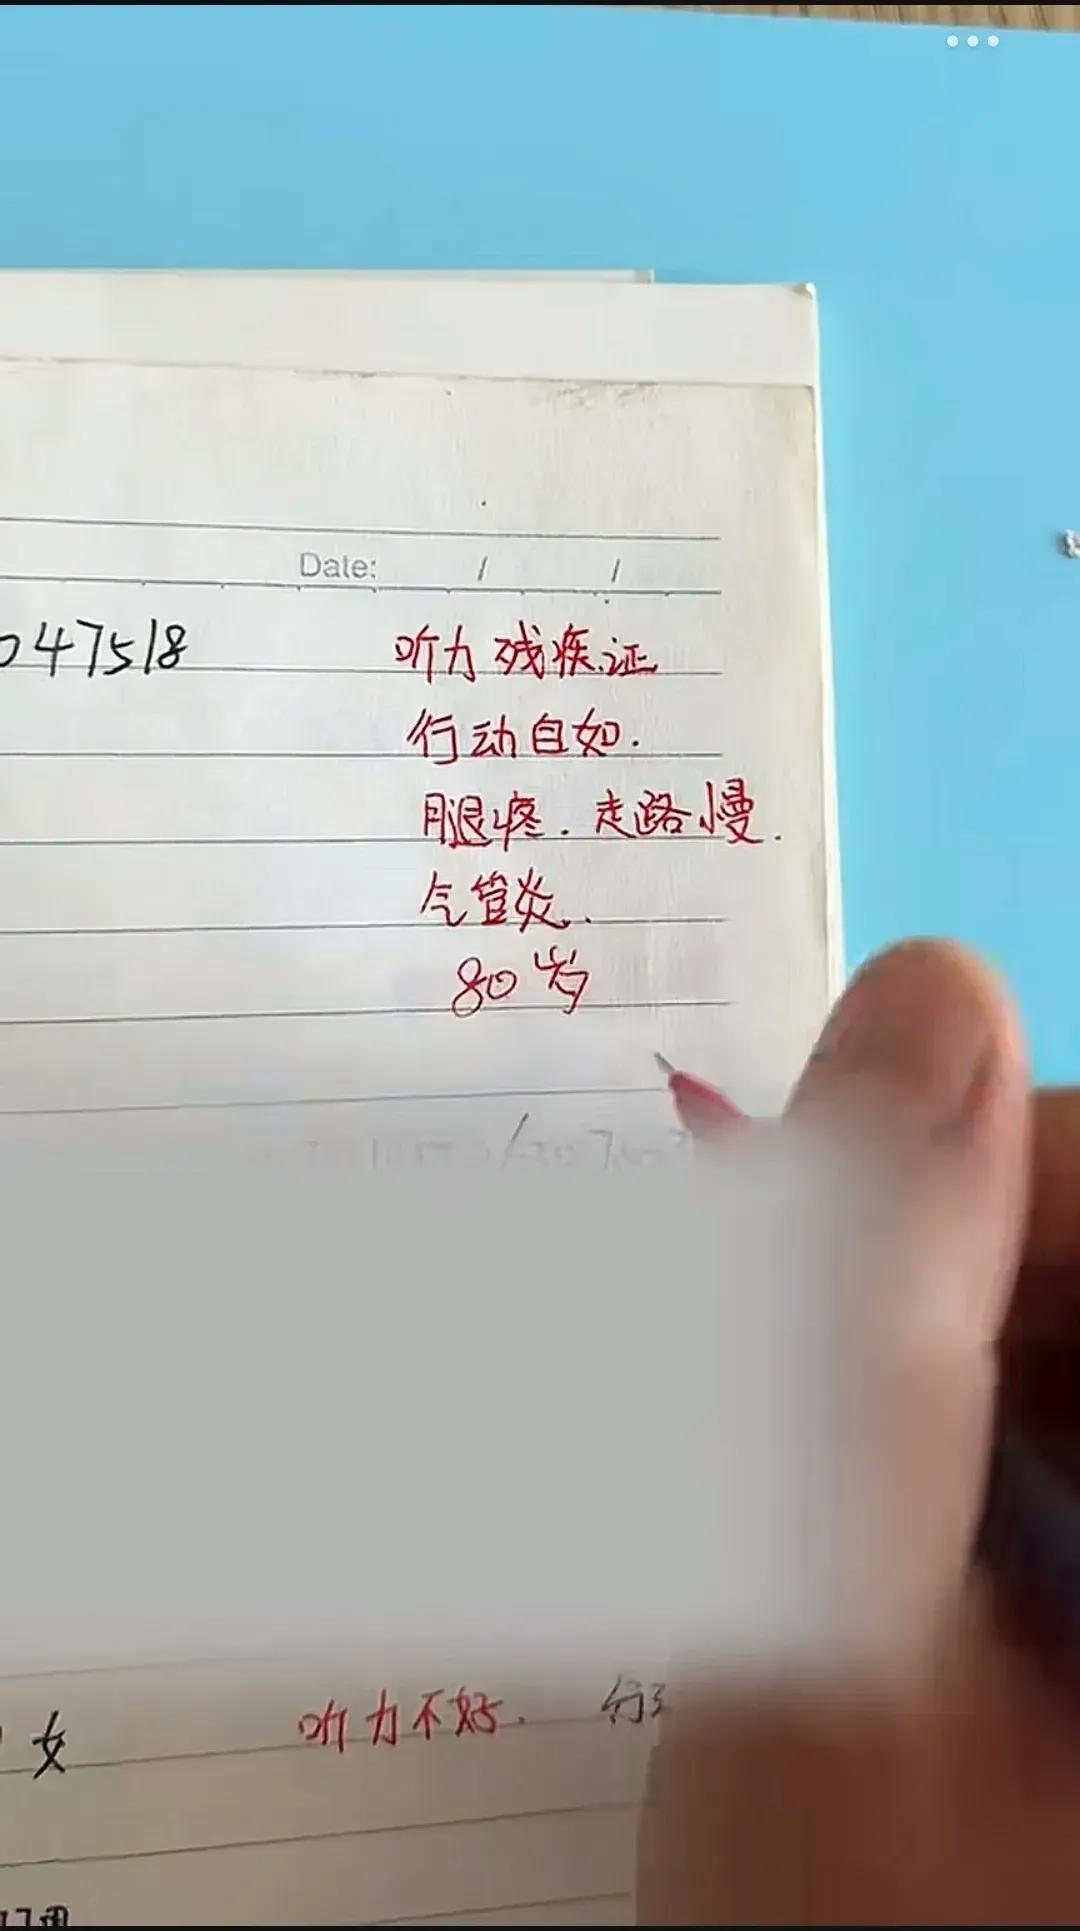 Date: / /
047518 听力残疾证
行动自如.
腿疼.走路慢.
气管炎.
80岁
女 听力不好. 行